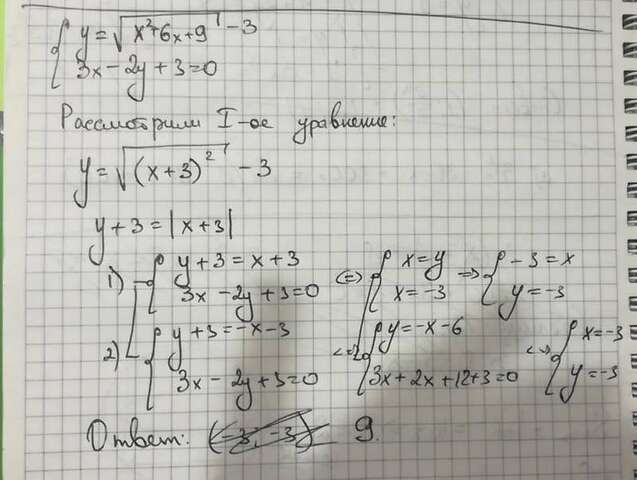 { y = √(x²+6x+9) - 3
3x - 2y + 3 = 0
Рассмотрим I-ое уравнение:
y = √((x+3)²) - 3
y + 3 = |x+3|
1) { y+3 = x+3 (=) { x = y => { -3 = x
3x - 2y + 3 = 0 x = -3 y = -3
2) { y+3 = -x-3 <=> { y = -x-6 <=> { x = -3
3x - 2y + 3 = 0 3x + 2x + 12 + 3 = 0 y = -3
Ответ: (-3, -3) 9.